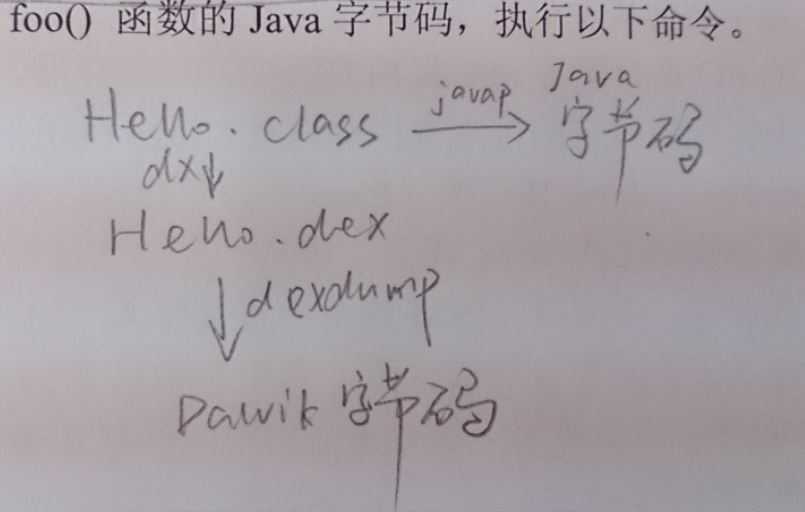 foo() 函数的 Java 字节码，执行以下命令。
Hello.class javap Java 字节码
dx
Hello.dex
dexdump
Dalvik 字节码